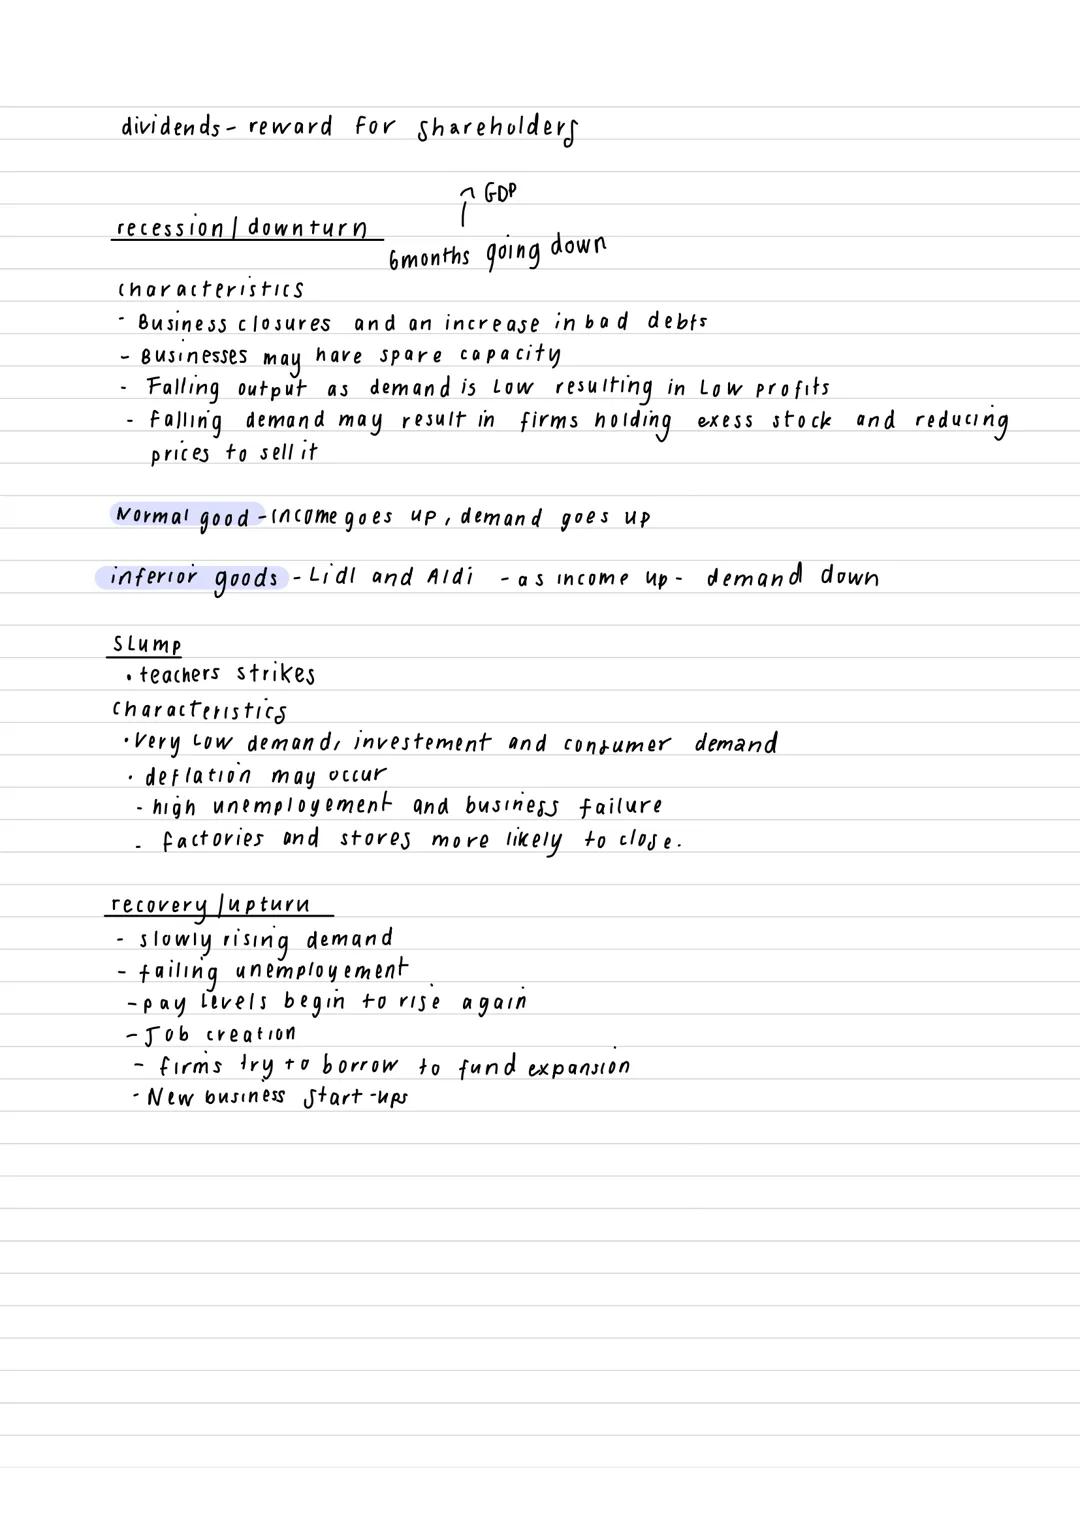 dividends - reward for shareholders
GDP
recession / downturn
6months going down
characteristics
- Business closures and an increase in bad debts
- Businesses may have spare capacity
- Falling output as demand is Low resulting in Low profits
- falling demand may result in firms holding exess stock and reducing
prices to sell it
Normal good - income goes up, demand goes up
inferior goods - Lidl and Aldi - as income up - demand down
Slump
• teachers strikes
characteristics
• Very Low demand, investement and consumer demand
• deflation may occur
- high unemployement and business failure
- factories and stores more likely to close.
recovery / upturn
- slowly rising demand
- failing unemployement
- pay levels begin to rise again
- Job creation
- firms try to borrow to fund expansion
- New business start-ups